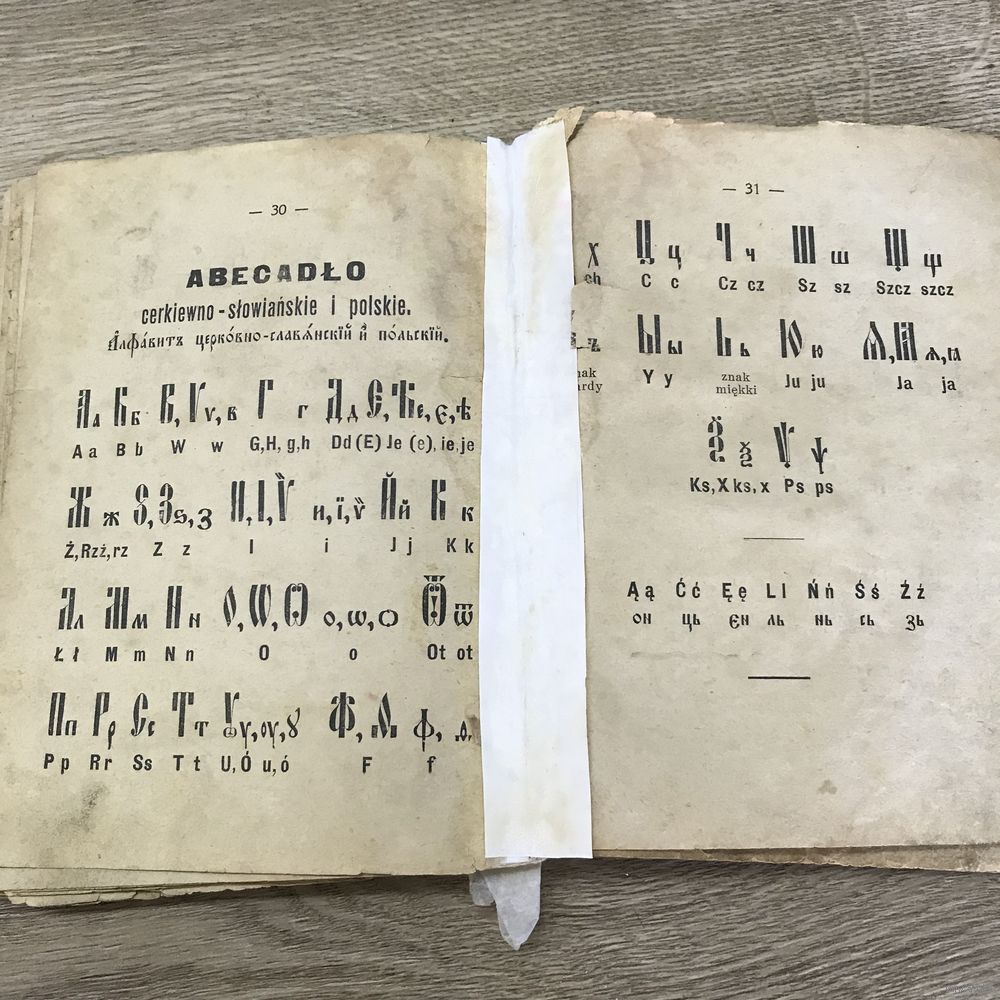 — 30 —
ABECADŁO
cerkiewno-słowiańskie i polskie.
Алфа́витъ церко́вно-славѧ́нскїй и҆ по́льскїй.
Аа Бб В,Ѵ ѵ,в Г г Дд Є,Ѣ е,є,ѣ
Aa Bb W w G,H, g,h Dd (E) Je (e), ie, je
Ж ж Ѕ,З ѕ,з И,І,Ѷ и,ї,ѷ Йй К к
Ż,Rz ż,rz Z z I i J j K k
Лл Мм Нн О,Ѡ,Ѻ о,ѡ,ѻ Ѿ ѿ
Ł ł M m N n O o Ot ot
Пп Рр Сс Тт Ꙋу,оу,ꙋ Ф,Ѳ ф, ѳ
P p R r S s T t U,Ó u,ó F f
— 31 —
Х Ц ц Ч ч Ш ш Щ щ
ch C c Cz cz Sz sz Szcz szcz
ъ Ы ы Ь ь Ю ю Ѧ,Ꙗ ѧ,ꙗ
Y y znak miękki Ju ju Ja ja
Ѯ ѯ Ѱ ѱ
Ks,X ks,x Ps ps
Ąą Ćć Ęę Ll Ńń Śś Źź
он ць єн ль нь сь зь